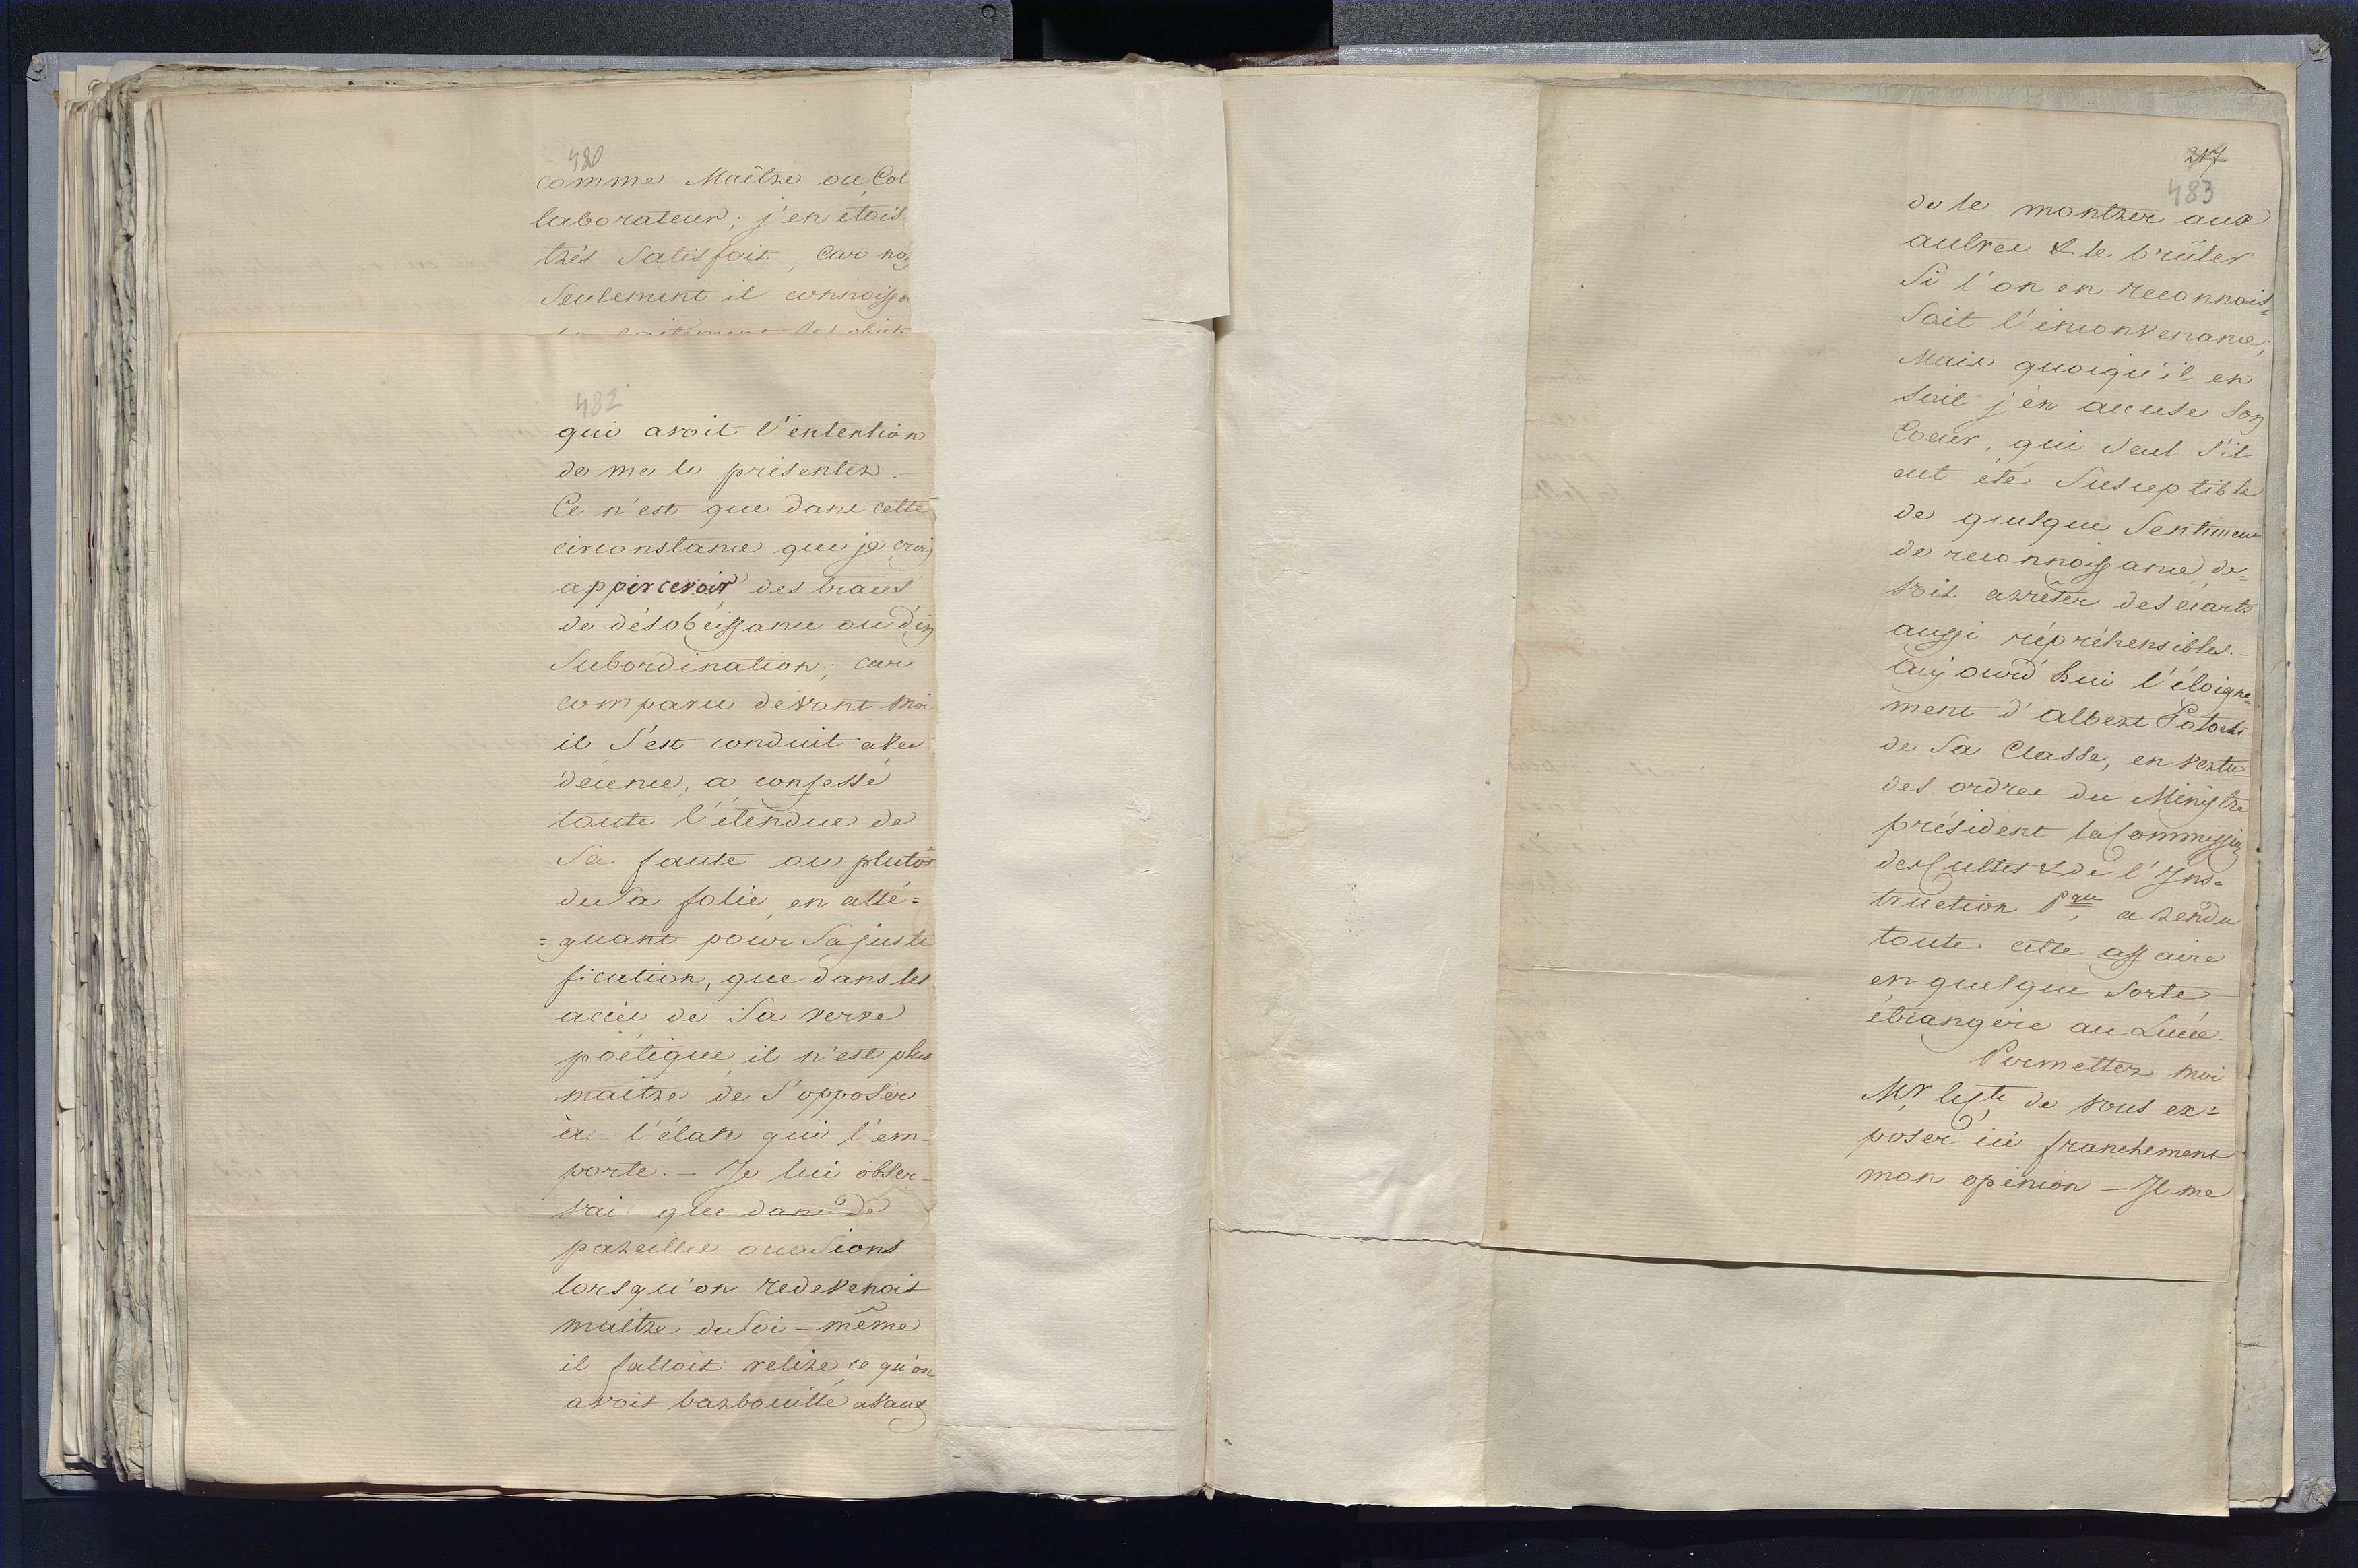 480
comme Maître ou Col
laborateur; j'en étois
très Satisfait, Car no
Seulement il connoissa
482
qui avoit l'intention
de me le présenter.
Ce n'est que dans cette
circonstance que je crois
appercevoir des traces
de désobéissance ou d'in
Subordination; car
comparu dévant moi
il S'est conduit avec
décence, a confessé
toute l'étendue de
Sa faute ou plutôt
de Sa folie, en allé=
=guant pour Sa justi
fication, que dans les
accès de Sa verve
poétique, il n'est plus
maitre de S'opposer
à l'élan qui l'em-
porte. - Je lui obser-
vai que dans de
pareilles occasions
lorsqu'on redevenoit
maitre de Soi-même
il falloit relire ce qu'on
avoit barbouillé avant
217
483
de le montrer aux
autres & le brûler
Si l'on en reconnois=
Soit l'inconvenance;
Mais quoiqu'il en
soit j'en accuse Son
Coeur, qui Seul S'il
eut été Susceptible
de quelque Sentiment
de reconnoissance, de=
voit arrêter des écarts
aussi répréhensibles. -
Aujourd'hui l'éloigne=
ment d'albert Potocki
de Sa Classe, en vertu
des ordres du Ministre
président la Commission
des Cultes & de l'Ins=
truction Pque. a rendu
toute cette affaire
en quelque Sorte
étrangère au Lycée.
Permettez moi
Mr le Cte de vous ex=
poser ici franchement
mon opinion - Il me